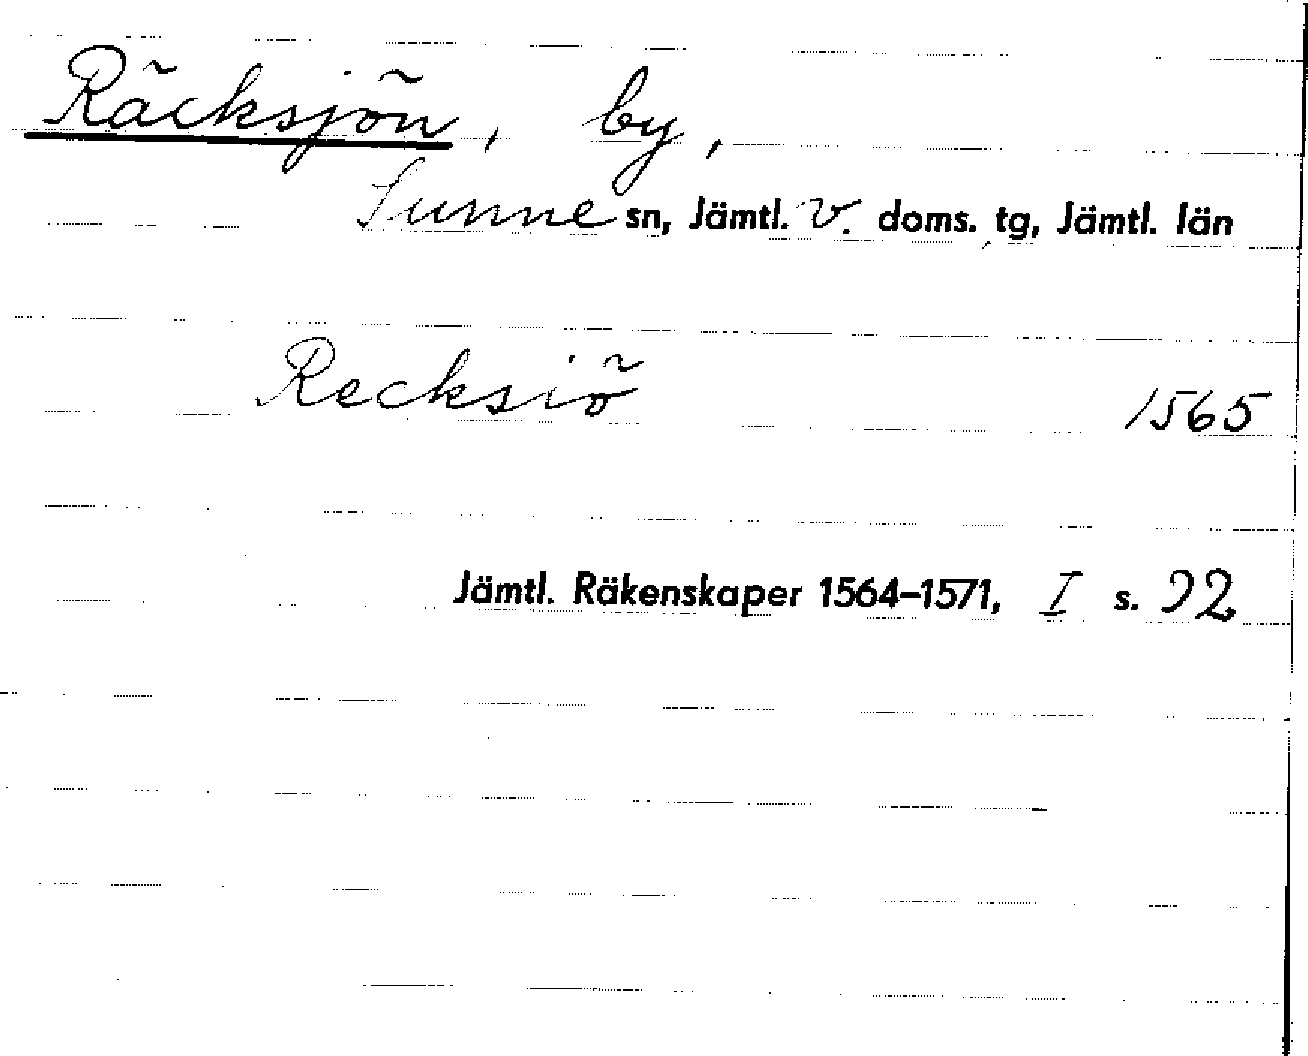 Räcksjön, by,
Sunne sn, Jämtl. v. doms. tg, Jämtl. län
Recksiö 1565
Jämtl. Räkenskaper 1564–1571, I s. 92